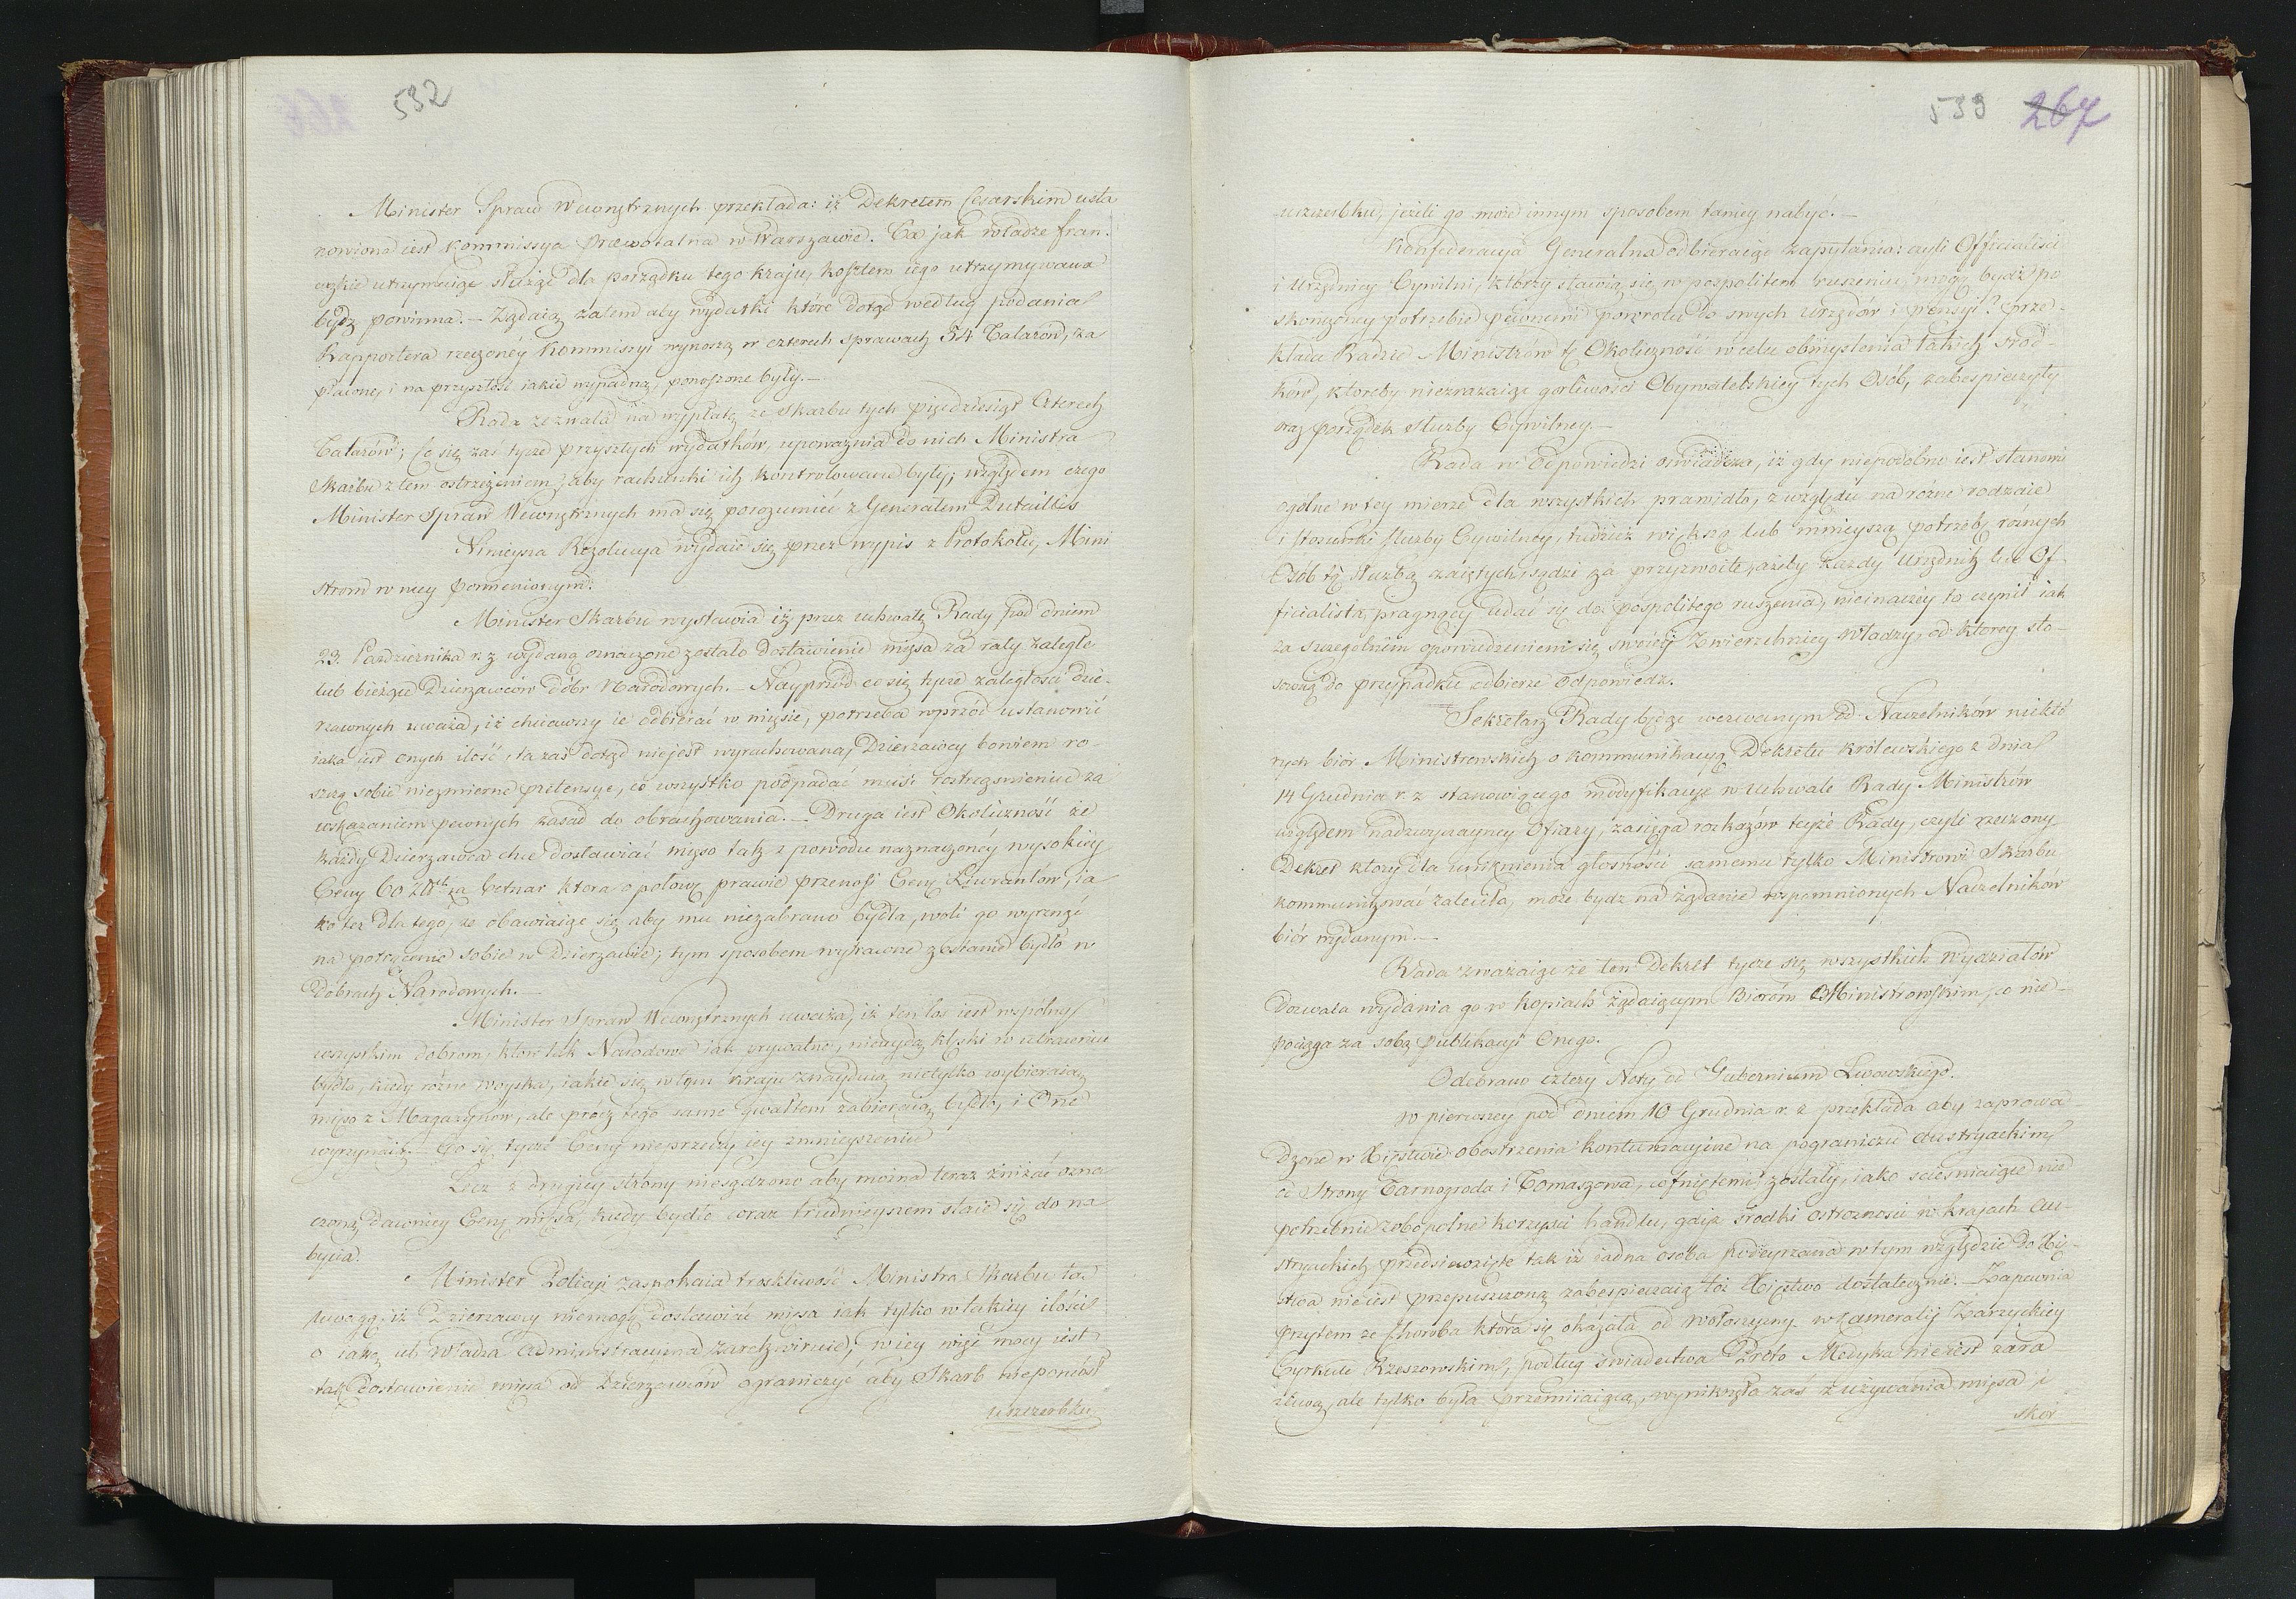 532
Minister Spraw Wewnętrznych przekłada: iż Dekretem Cesarskim usta
nowiona iest Kommissya Prewotalna w Warszawie. Ta jak władze fran-
cuzkie utrzymuiąc służąc dla porządku tego kraju, kosztem iego utrzymywana
bydź powinna. — Żądaią zatem aby wydatki które dotąd według podania
Rapportera rzeczoney Kommissyi wynoszą w czterech sprawach 54 Talarów, za
płacone, i na przyszłość jakie wypadną, ponoszone były. —
Rada zezwala na wypłatę ze Skarbu tych pięćdziesiąt czterech
Talarów; Co się zaś tycze przyszłych wydatków, upoważnia do nich Ministra
Skarbu z tem ostrzeżeniem, aby rachunki ich kontrolowane były; względem czego
Minister Spraw Wewnętrznych ma się porozumieć z Generałem Dutaillis
Ninieysza Rezolucya wydaie się przez wypis z Protokołu, Mini
strom w niey pomienionym.
Minister Skarbu wystawia iż przez uchwałę Rady pod dniem
23. Października r. z. wydaną oznaczone zostało dostawienie mięsa za raty zaległe
lub bieżące Dzierzawców dóbr Narodowych. — Nayprzód co się tycze zaległości dzie-
rzawnych uważa, iż chciawszy ie odbierać w mięsie, potrzeba wprzód ustanowić
iaka iest onych ilość, ta zaś dotąd nie jest wyrachowaną, Dzierzawcy bowiem ro-
szczą sobie niezmierne pretensye, co wszystko podpadać musi rostrząsnieniu za
wskazaniem pewnych zasad do obrachowania. — Druga iest Okoliczność że
każdy Dzierzawca chce dostawiać mięso tak z powodu naznaczoney wysokiey
Ceny 60 Złtch za Cetnar która o połowę prawie przenosi Ceny Liwrantów, ia
ko też dla tego, że obawiaiąc się aby mu niezabrano bydła, woli go wyrznąć
na potrącenie sobie w Dzierzawie; tym sposobem wytrawione zostanie bydło w
Dobrach Narodowych. —
Minister Spraw Wewnętrznych uważa, iż ten los iest wspólny
wszystkim dobrom, które tak Narodowe iak prywatne, nieuydą klęski w utraceniu
bydła, kiedy różne woyska, iakie się w tym kraju znayduią nietylko wybieraią
mięso z Magazynów, ale prócz tego same gwałtem zabieraią bydło, i One
wyrzynaią. — Co się tycze Ceny nieprzeczy iey zmnieyszeniu
Lecz z drugiey strony niesądzono aby można teraz zniżać ozna
czoną dawniey Cenę mięsa, kiedy bydło coraz trudnieyszem staie się do na
bycia.
Minister Policyi zaspokaia troskliwość Ministra Skarbu tą
uwagą, iż Dzierzawcy niemogą dostawiać mięsa iak tylko w takiey ilości
o iaką ich władza administracyina zarekwiruie, w iey więc mocy iest
tak dostawienie mięsa od Dzierzawców ograniczyć aby Skarb nieponiósł
uszczerbku
533 267
uszczerbku, jeżeli go może innym sposobem taniey nabyć. —
Konfederacya Generalna odbieraiąc zapytania: czyli Officialiści
i Urzędnicy Cywilni, którzy stawią się w pospolitem ruszeniu, mogą bydź po
skończoney potrzebie pewnemi powrotu do swych urzędów i pensyi? prze-
kłada Radzie Ministrów tę Okoliczność w celu obmyślenia takich środ-
ków, któreby niezrażaiąc gorliwości Obywatelskiey tych Osób, zabespieczyły
oraz porządek służby Cywilney. —
Rada w Odpowiedzi oświadcza, iż gdy niepodobno iest stanowić
ogólne w tey mierze dla wszystkich prawidło, z względu na różne rodzaie
i stosunki służby Cywilney, tudzież większą lub mnieyszą potrzebę różnych
Osób tą służbą zaiętych, sądzi za przyzwoite, ażeby każdy Urzędnik lub Of-
ficialista, pragnący udać się do pospolitego ruszenia, nieinaczey to czynił iak
za szczególnem opowiedzeniem się swoiey Zwierzchniey Władzy, od ktorey sto-
sowną do przypadku odbierze odpowiedź.
Sekretarz Rady będąc wezwanym od Naczelników niektó
rych biór Ministrowskich o kommunikacyą Dekretu królewskiego z dnia
14 Grudnia r. z. stanowiącego modyfikacye w uchwale Rady Ministrów
względem nadzwyczayney Ofiary, zasięga rozkazów teyże Rady, czyli rzeczony
Dekret który dla uniknienia głośności samemu tylko Ministrowi Skarbu
kommunikować zaleciła, może bydź na żądanie wspomnionych Naczelników
biór wydanym. —
Rada zważaiąc że ten Dekret tycze się wszystkich Wydziałów
dozwala wydania go w kopiach żądaiącym Biórom Ministrowskim, co nie-
pociąga za sobą publikacyi Onego.
Odebrano cztery Noty od Gubernium Lwowskiego.
W pierwszey pod dniem 10 Grudnia r. z. przekłada aby zaprowa-
dzone w Xięstwie obostrzenia kontumacyine na pograniczu austryackim
od strony Tarnogroda i Tomaszowa, cofniętemi zostały, iako ścieśniaiące nie
potrzebnie zobopolne korzyści handlu, gdyż środki ostrożności w krajach au-
stryackich przedsięwzięte tak iż żadna osoba podeyrzana w tym względzie do Xię-
stwa nie iest przepuszczoną zabespieczaią toż Xięstwo dostatecznie. — Zapewnia
przytem że choroba która się okazała od Wołoszyny w Kameralij Zarzyckiey
Cyrkule Rzeszowskim, podług świadectwa Proto Medyka nie iest zara
źliwą, ale tylko była przemiiaiącą, wyniknęła zaś z używania mięsa i
skór